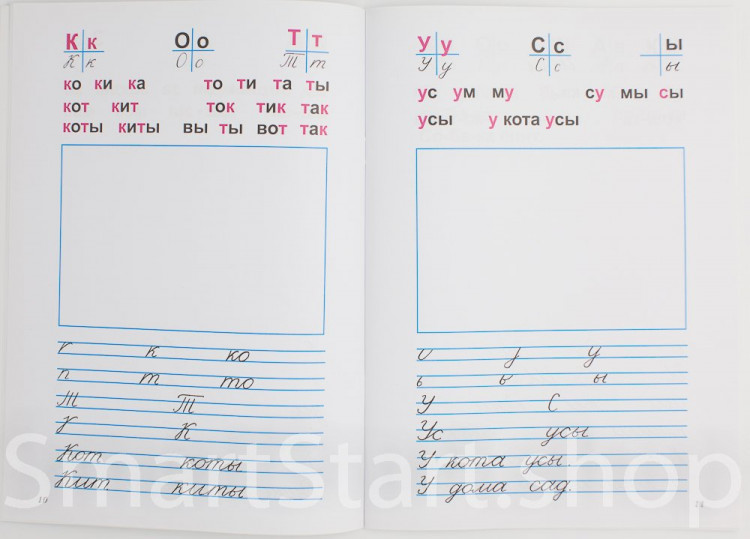 К к О о Т т
К к О о Т т
ко ки ка то ти та ты
кот кит ток тик так
коты киты вы ты вот так
к ко
т то
Т Т
К
Кот коты
Кит киты
19
У у С с ы
У у С с ы
ус ум му су мы сы
усы у кота усы
у
ь ы
У С
Ус усы
У кота усы.
У дома сад.
SmartStart.shop